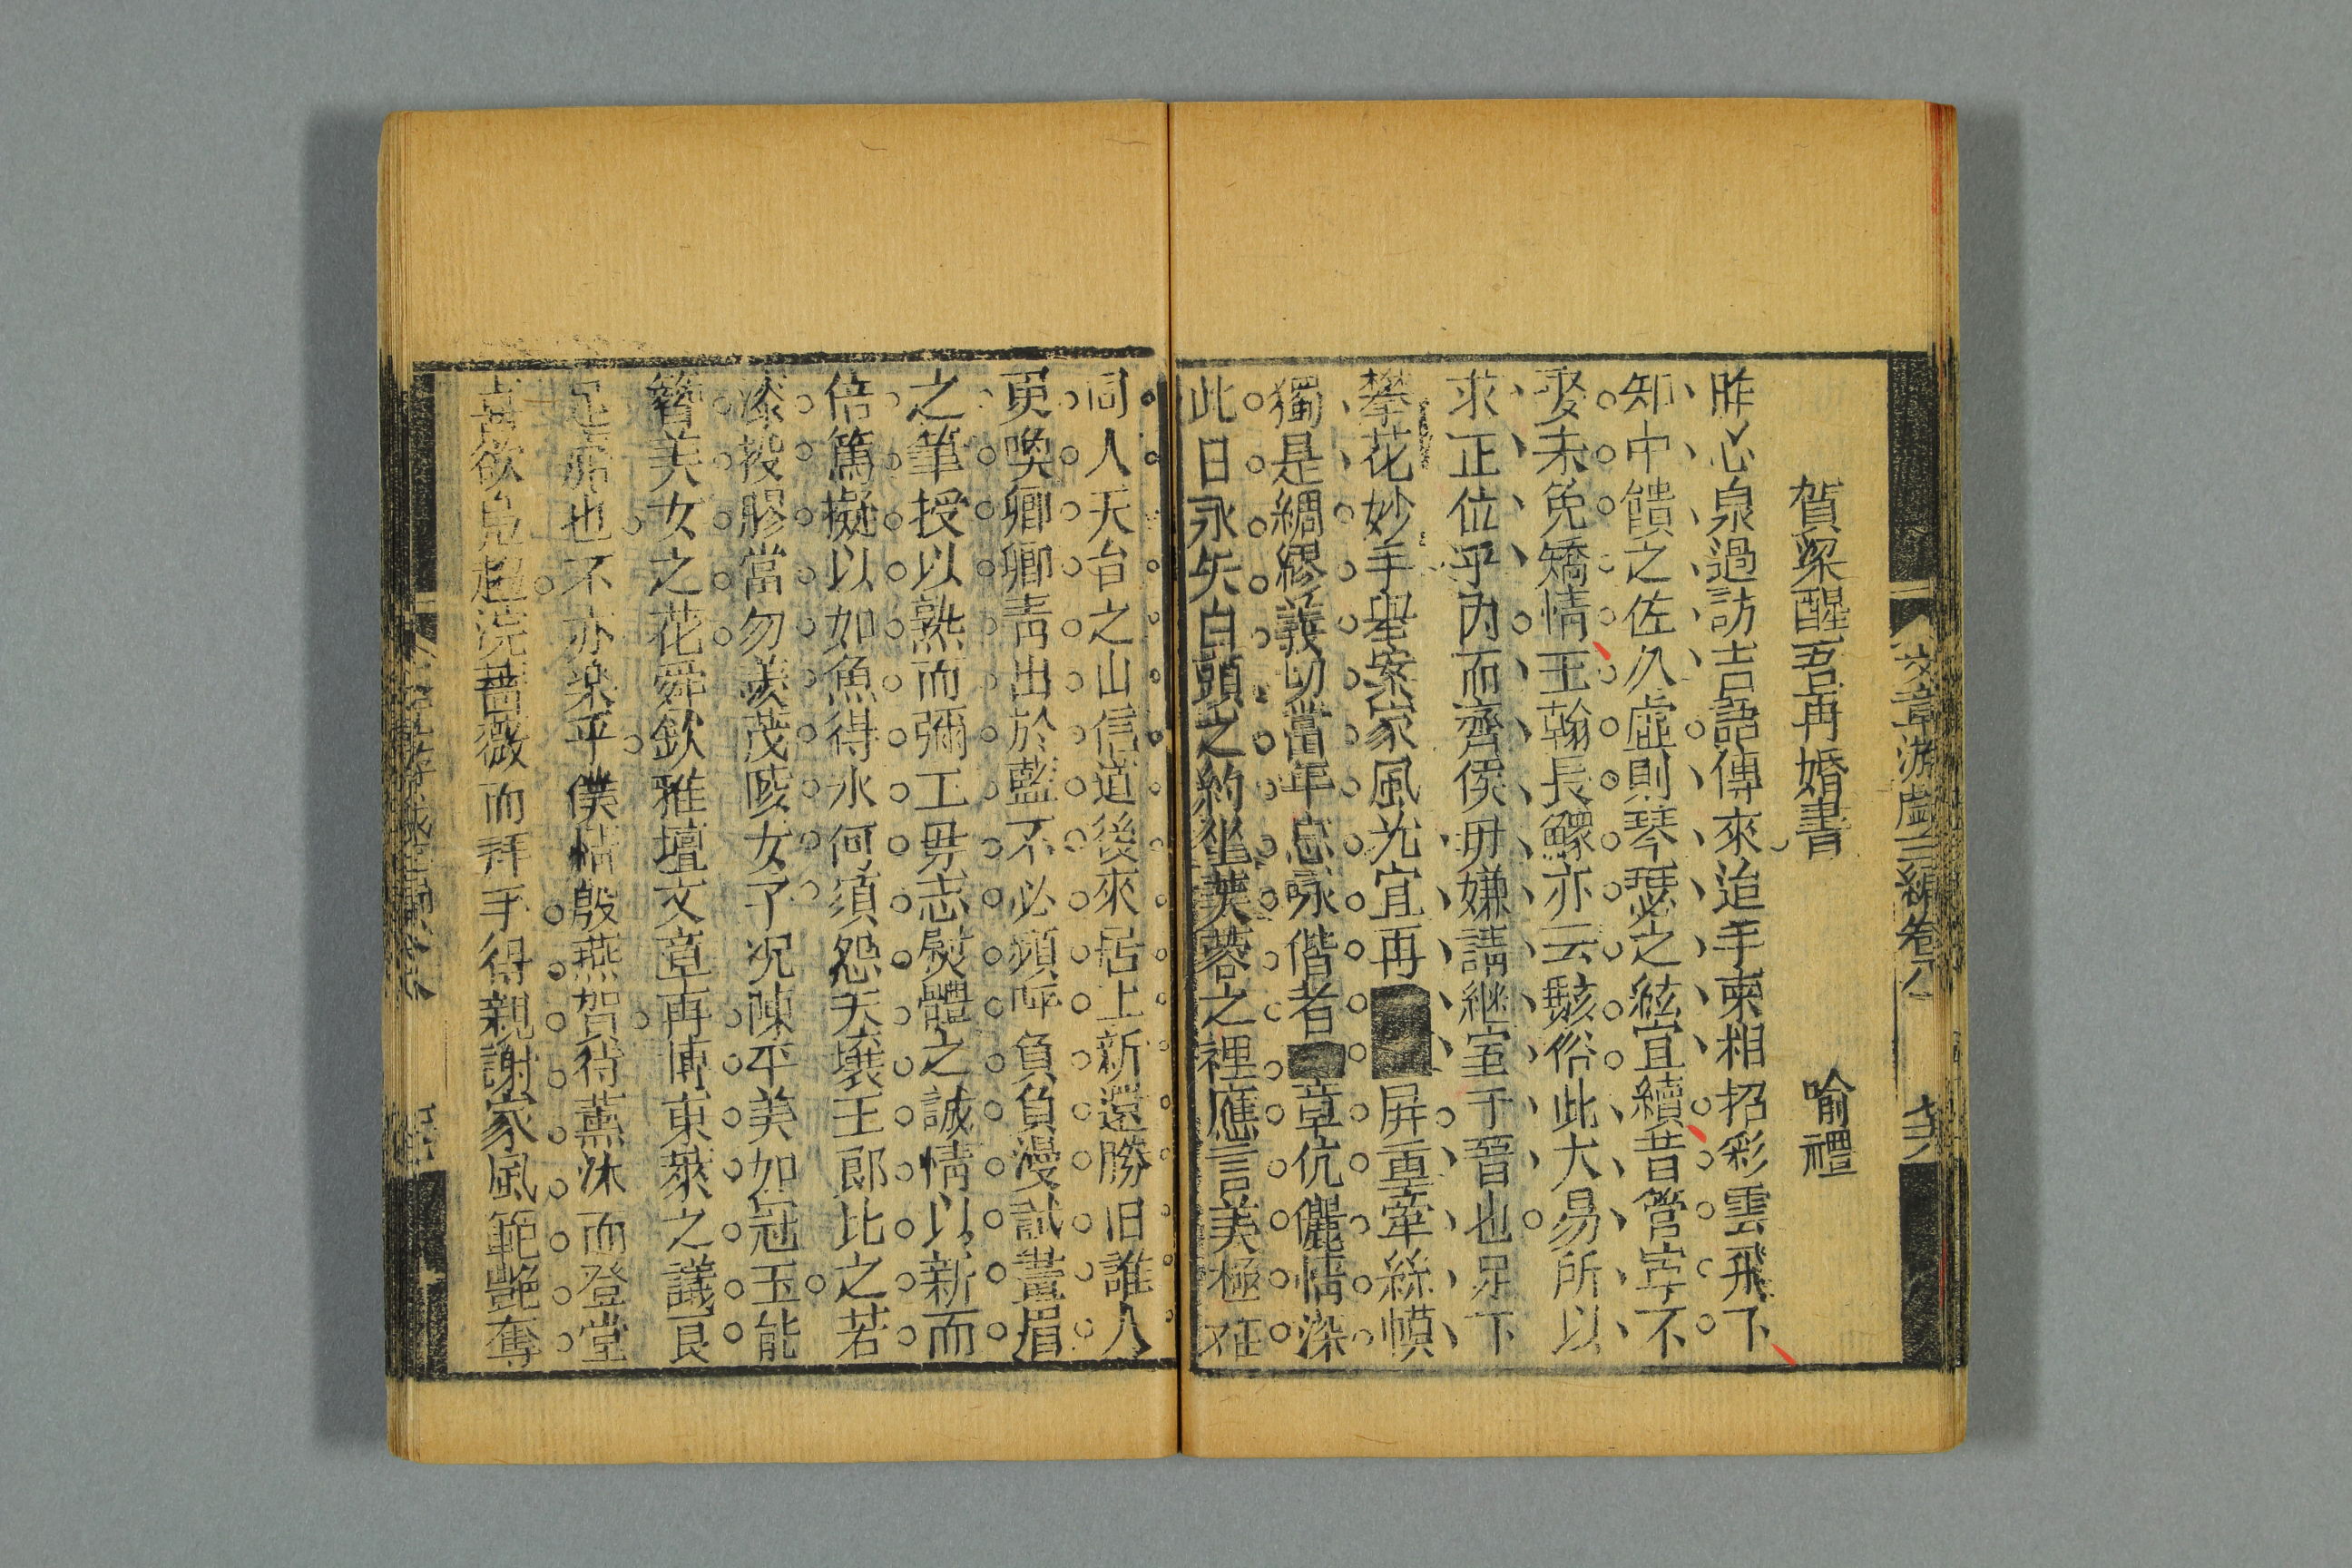 文章游戲三編卷八
賀梁醒吾再婚書 喻禮
昨心泉過訪吉語傳來迨手柬相招彩雲飛下
知中饋之佐久虛則琴瑟之絃宜續昔管寧不
娶未免矯情王翰長鰥亦云駭俗此大易所以
求正位乎內而齊侯毋嫌請継室于晉也足下
攀花妙手舉案家風尤宜再 屏重牽絲幙
獨是綢繆義切當年忘咏偕老 章伉儷情深
此日永矢白頭之約坐芙蓉之裡應言美極在
同人天台之山信道後來居上新還勝旧誰人
更喚卿卿青出於藍不必頻呼負負漫試畫眉
之筆授以熟而彌工毋忘熨體之誠情以新而
倍篤擬以如魚得水何須怨天壤王郎比之若
漆投膠當勿羨茂陵女子況陳平美如冠玉能
簪美女之花舜欽雅壇文章再博東萊之議良
足席也不亦樂乎僕情殷燕賀待薰沐而登堂
喜欲鳧趨浣薔薇而拜手得親謝家風範艶奪